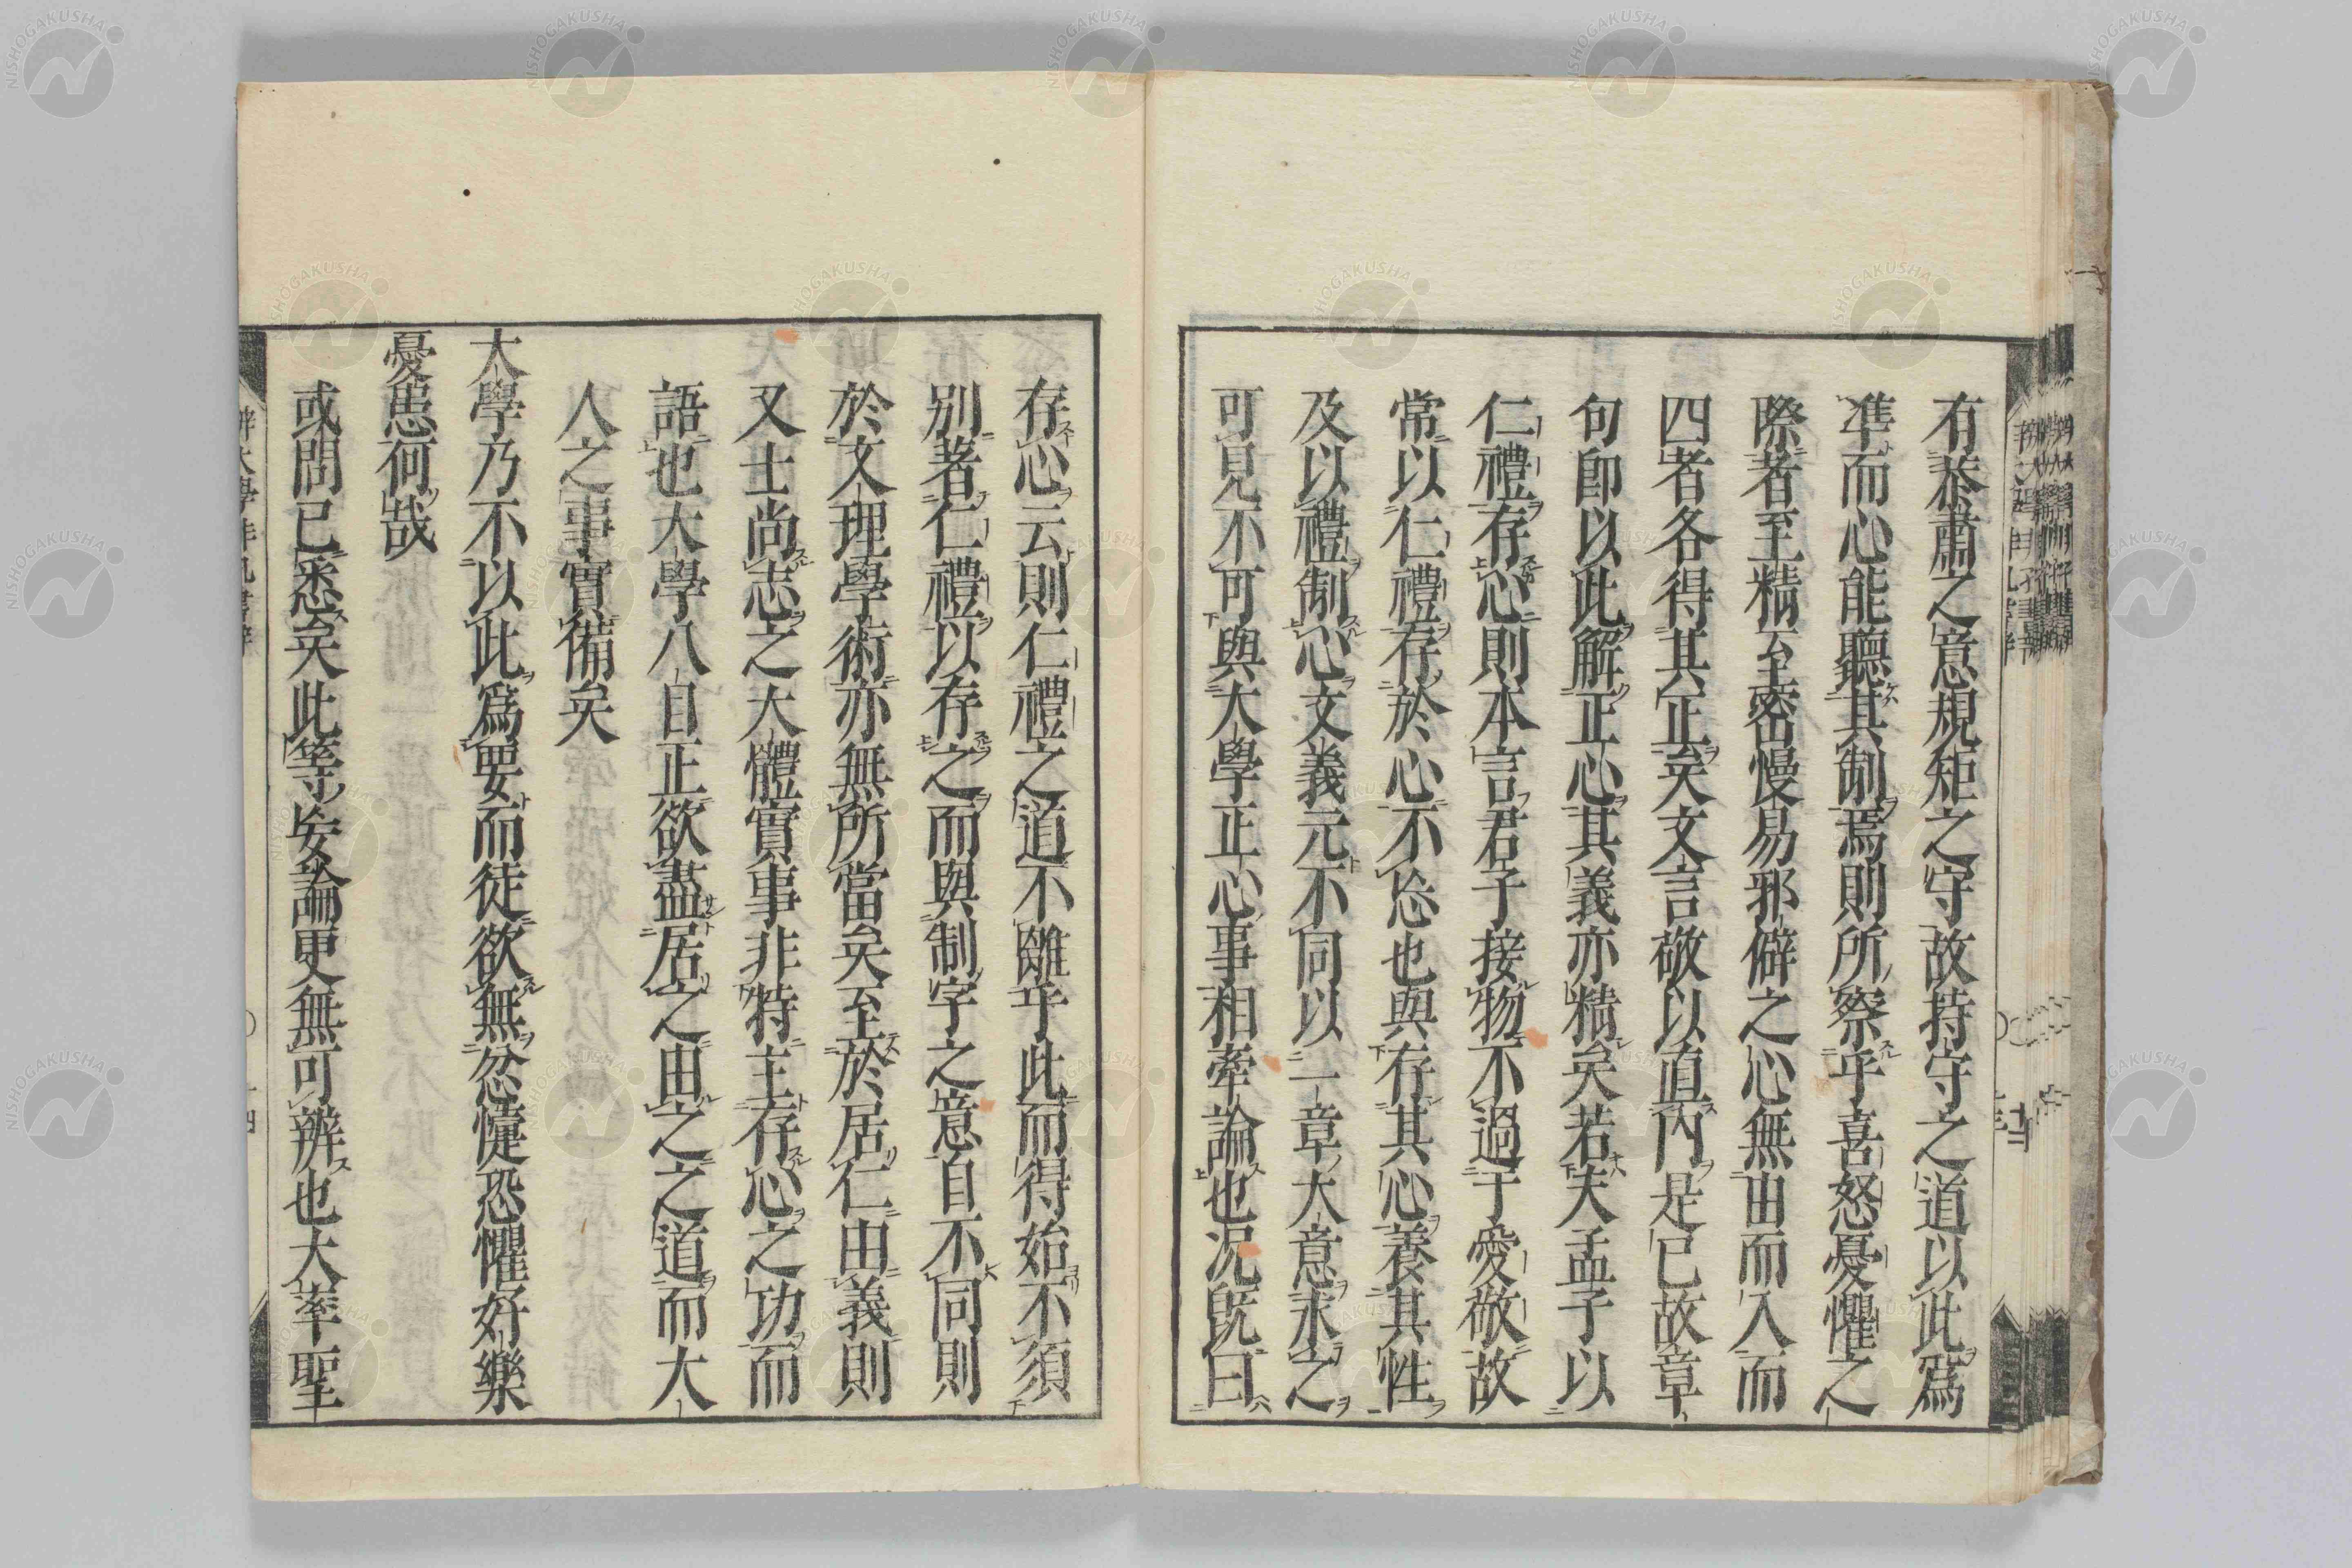 有恭肅之意規矩之守故持守之道以此爲
準而心能聽其制焉則所察乎喜怒憂懼之
際者至精至密慢易邪僻之心無由而入而
四者各得其正矣文言敬以直內是已故章
句卽以此解正心其義亦精矣若夫孟子以
仁禮存心則本言君子接物不過于愛敬故
常以仁禮存於心不忘也與存其心養其性
及以禮制心文義元不同以一章大意求之
可見不可與大學正心事相牽論也況旣曰
存心云則仁禮之道不離乎此而得始不須
別著仁禮以存之而與制字之意自不同則
於文理學術亦無所當矣至於居仁由義則
又士尚志之大體實事非特主存心之功而
語也大學八目正欲盡居之由之之道而大
人之事實備矣
大學乃不以此爲要而徒欲無忿懥恐懼好樂
憂患何哉
或問已悉矣此等妄論更無可辨也大率聖
NISHOGAKUSHA